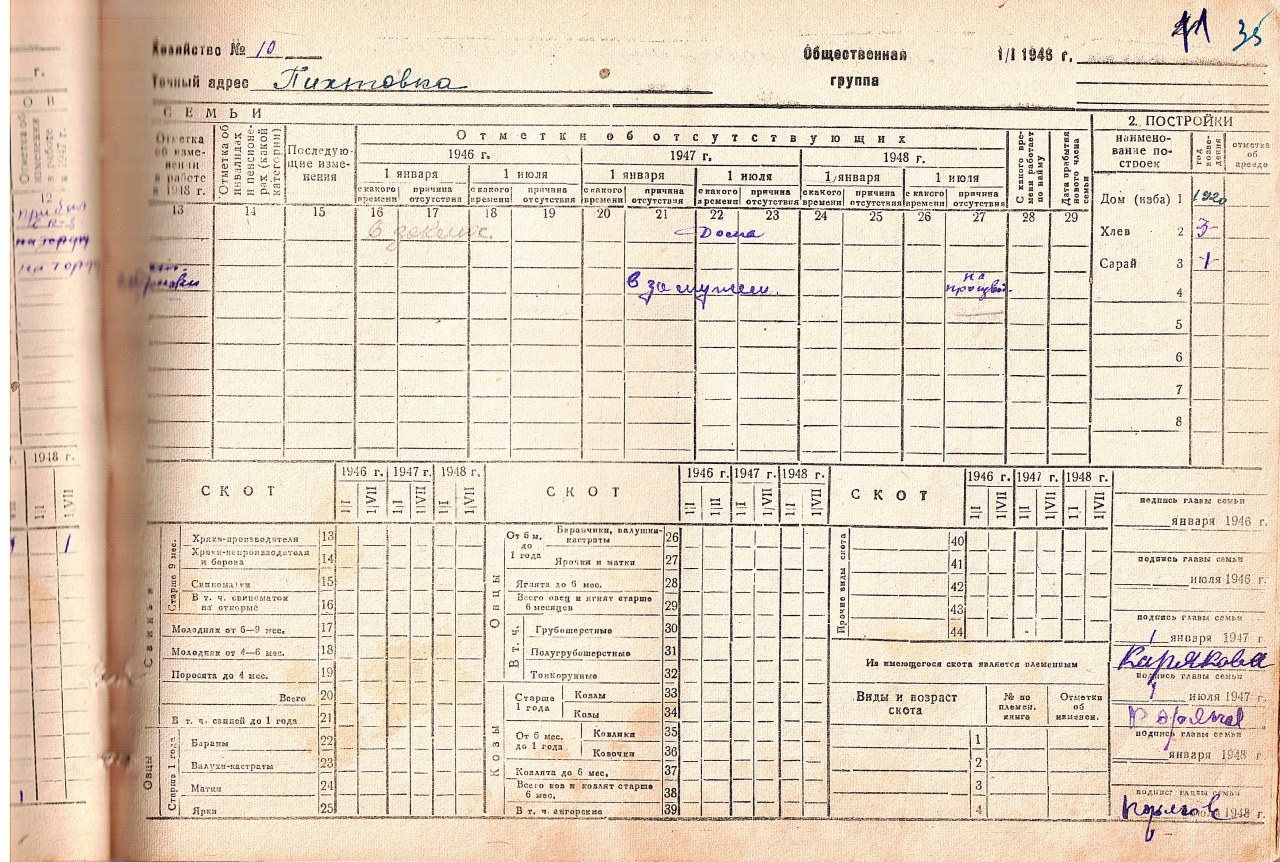 41 35
Хозяйство № 10
Общественная группа
1/I 1948 г.
Точный адрес Пихтовка
СЕМЬИ
Отметка об изменении в работе в 1948 г.
Отметка об инвалидах и пенсионерах (какой категории)
Последующие изменения
Отметки об отсутствующих
1946 г. 1947 г. 1948 г.
1 января 1 июля 1 января 1 июля 1 января 1 июля
с какого времени причина отсутствия с какого времени причина отсутствия с какого времени причина отсутствия с какого времени причина отсутствия с какого времени причина отсутствия с какого времени причина отсутствия
С какого времени работает по найму
Дата прибытия нового члена семьи
12 13 14 15 16 17 18 19 20 21 22 23 24 25 26 27 28 29
Дома
в замужем
на
2. ПОСТРОЙКИ
наименование построек
год возведения
отметка об аренде
Дом (изба) 1 1920
Хлев 2 3
Сарай 3 1
4
5
6
7
8
на торф
на торф
г.
О В
Отметка об изменении в работе в 1947 г.
1948 г.
1/I 1/VII
1
СКОТ
1946 г. 1947 г. 1948 г.
1/I 1/VII 1/I 1/VII 1/I 1/VII
Свиньи
Старше 9 мес.
Хряки-производители 13
Хряки-непроизводители и борова 14
Свиноматки 15
В т. ч. свиноматок на откорме 16
Молодняк от 6—9 мес. 17
Молодняк от 4—6 мес. 18
Поросята до 4 мес. 19
Всего 20
В т. ч. свиней до 1 года 21
Овцы
Старше 1 года
Бараны 22
Валухи-кастраты 23
Матки 24
Ярки 25
СКОТ
1946 г. 1947 г. 1948 г.
1/I 1/II 1/I 1/VII 1/I 1/VII
Овцы
От 6 м. до 1 года
Баранчики, валушки-кастраты 26
Ярочки и матки 27
Ягнята до 6 мес. 28
Всего овец и ягнят старше 6 месяцев 29
В т. ч.
Грубошерстные 30
Полугрубошерстные 31
Тонкорунные 32
Козы
Старше 1 года
Козлы 33
Козы 34
От 6 мес. до 1 года
Козлики 35
Козочки 36
Козлята до 6 мес. 37
Всего коз и козлят старше 6 мес. 38
В т. ч. ангорские 39
СКОТ
1946 г. 1947 г. 1948 г.
1/I 1/VII 1/I 1/VII 1/I 1/VII
Прочие виды скота
40
41
42
43
44
Из имеющегося скота является племенным
Виды и возраст скота
№ по племен. книге
Отметки об изменен.
1
2
3
4
подпись главы семьи
января 1946 г.
подпись главы семьи
июля 1946 г.
подпись главы семьи
1 января 1947 г.
Карякова
подпись главы семьи
июля 1947 г.
подпись главы семьи
января 1948 г.
подпись главы семьи
июля 1948 г.